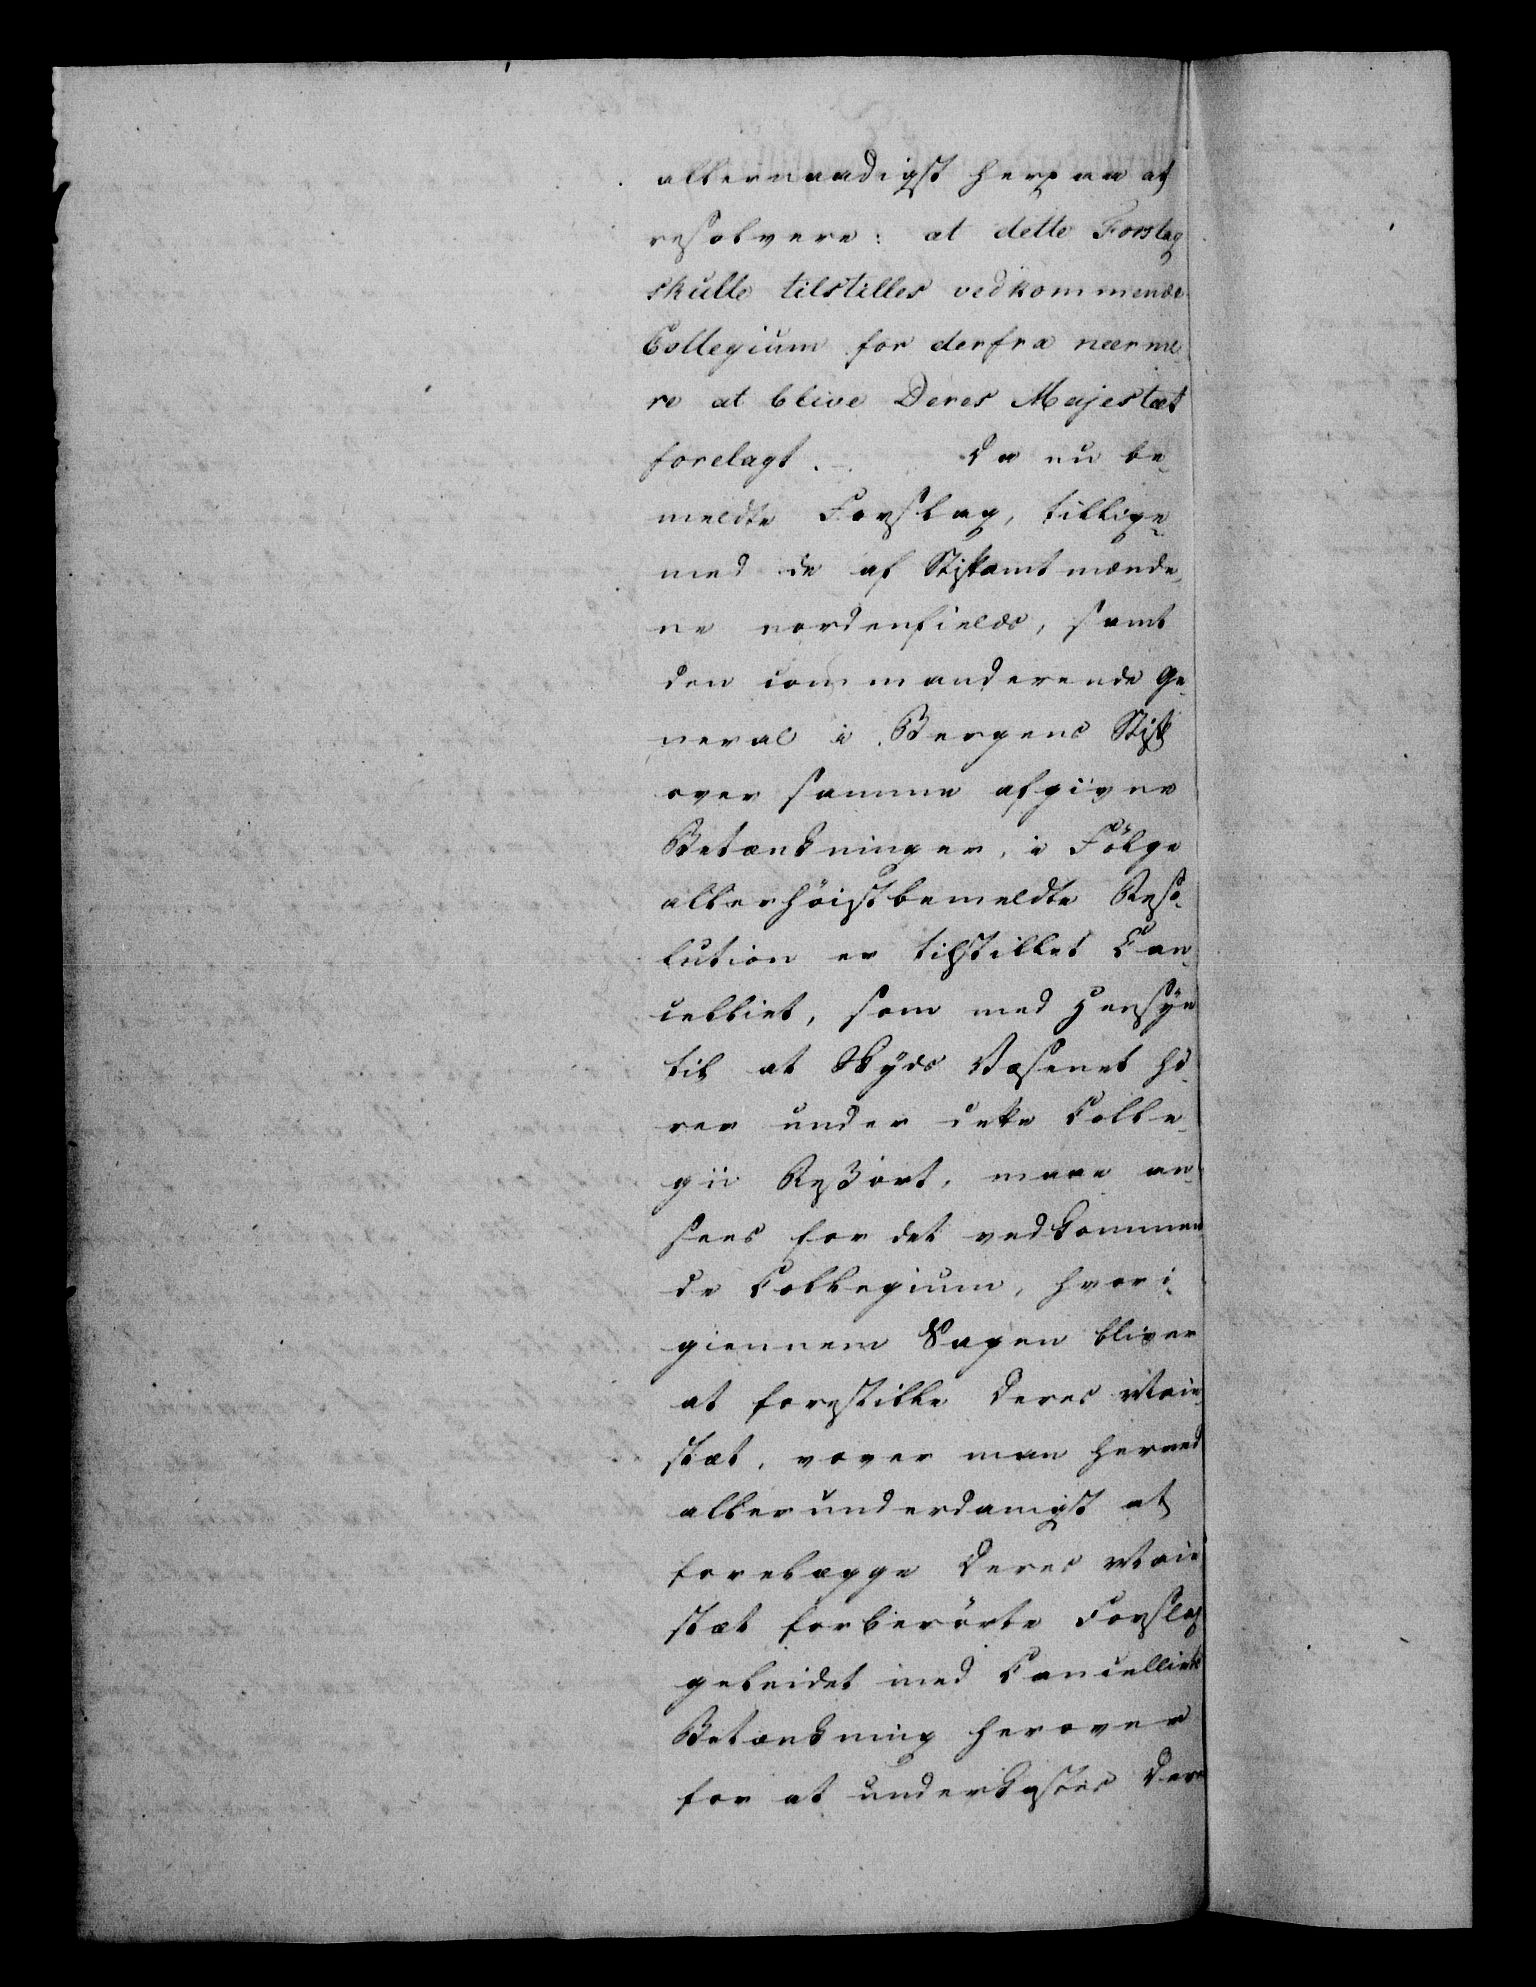 allernaadigst herpaa at
resolvere: at dette Forslag
skulle tilstilles vedkommende
Collegium for derfra nærme-
re at blive Deres Majestæt
forelagt. Da nu be-
meldte Forslag, tillige-
med de af Stiftamtmænde-
ne nordenfields, samt
den commanderende Ge-
neral i Bergens Stift
over samme afgivne
Betænkninger, i Følge
allerhöistbemeldte Reso-
lution er tilstillet Can-
celliet, som med Hensÿn
til at Skÿds Væsenet hö-
rer under dette Colle-
gii Reszort, maae an-
sees for det vedkommen
de Collegium, hvori-
giennem Sagen bliver
at forestille Deres Maie-
stæt, vover man herved
allerunderdanigst at
forelægge Deres Maie
stæt forberörte Forslag
geleidet med Cancelliets
Betænkning herover
for at underkastes Deres